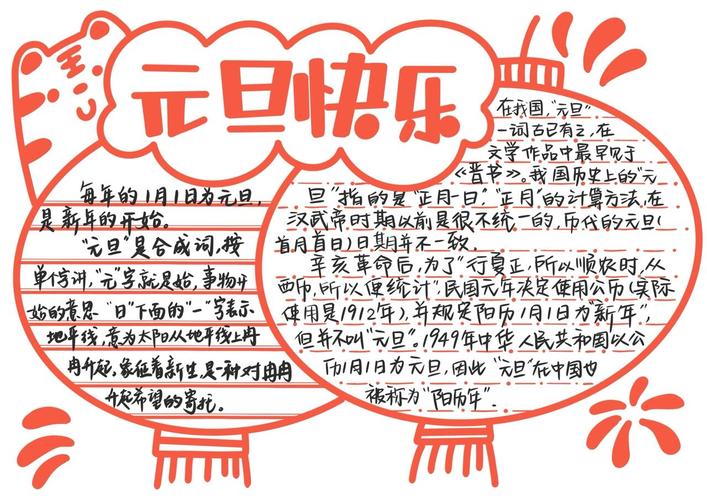 元旦快乐
每年的1月1日为元旦,
是新年的开始。
"元旦"是合成词,按
单个字讲,"元"字就是始,事物开
始的意思"日"下面的"一"字表示
地平线,意为太阳从地平线上冉
冉升起,象征着新生,是一种对冉冉
升起希望的寄托。
在我国,"元旦"
一词古已有之,在
文学作品中最早见于
《晋书》。我国历史上的"元
旦"指的是"正月一日"."正月"的计算方法,在
汉武帝时期以前是很不统一的,历代的元旦(
首月首日)日期并不一致.
辛亥革命后,为了"行夏正,所以顺农时,从
西历,所以便统计",民国元年决定使用公历(实际
使用是1912年),并规定阳历1月1日为"新年",
但并不叫"元旦"。1949年中华人民共和国以公
历1月1日为元旦,因此"元旦"在中国也
被称为"阳历年".